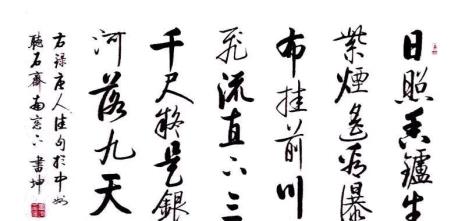 日照香鑪生
紫煙遙看瀑
布挂前川
飛流直下三
千尺疑是銀
河落九天
右録唐人佳句於中州
聽石齋南窓下書坤